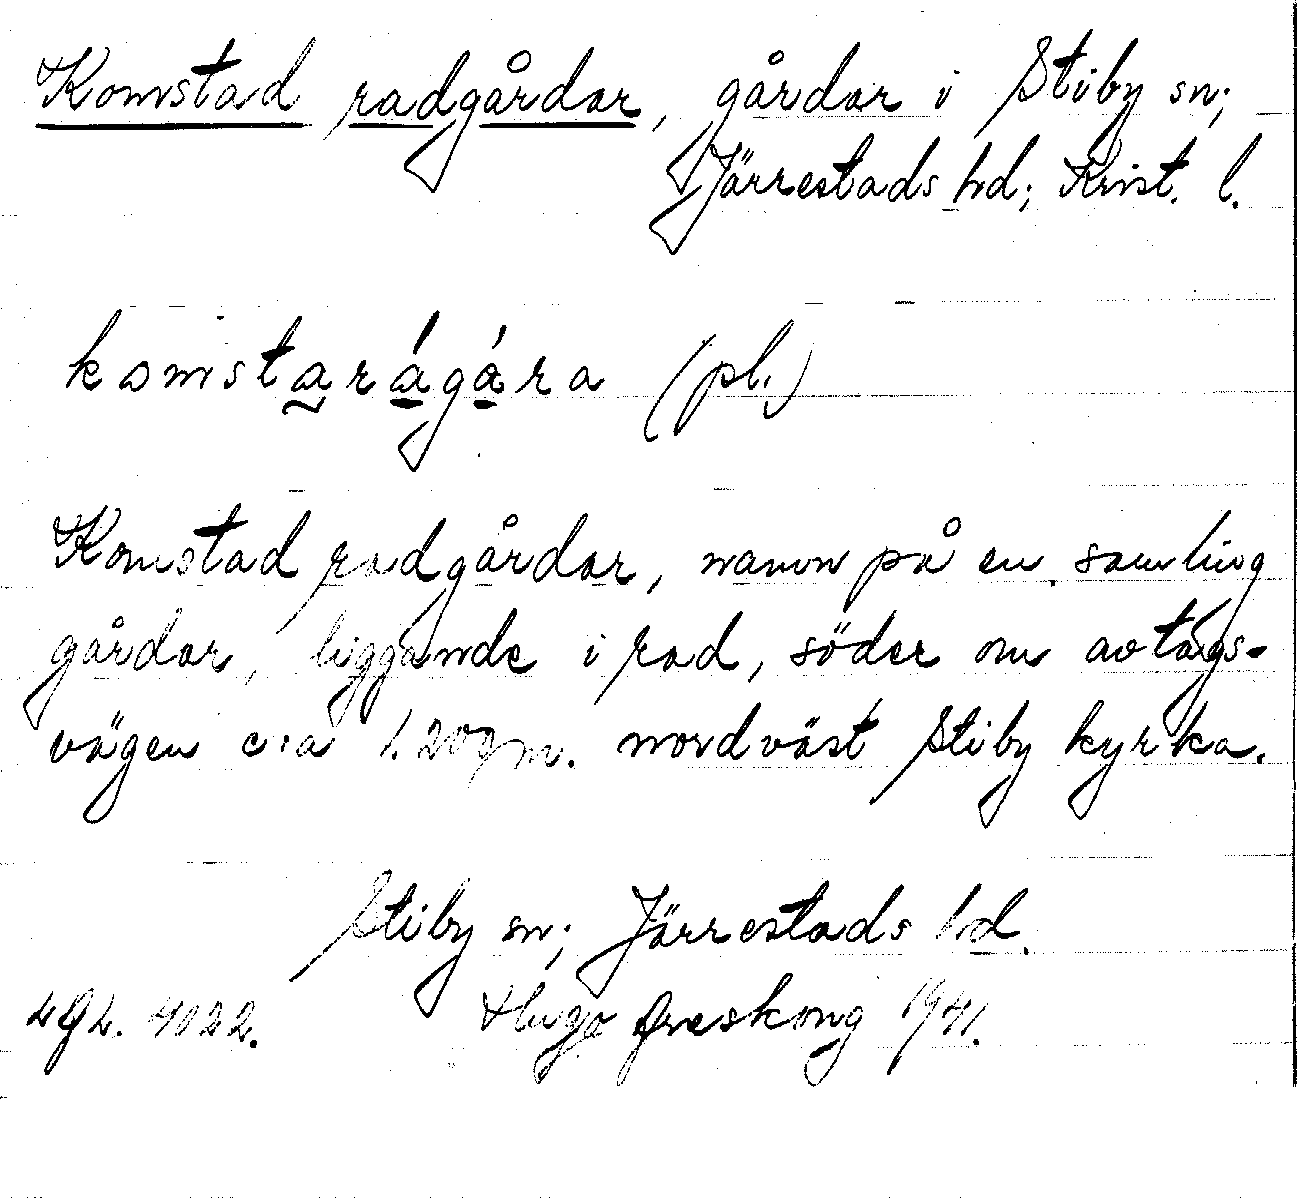 Komstad radgårdar, gårdar i Stiby sn;
Järrestads hd; Krist. l.
komstarágára (pl.)
Komstad radgårdar, namn på en samling
gårdar, liggande i rad, söder om avtågs-
vägen c:a 1.200 m. nordväst Stiby kyrka.
Stiby sn; Järrestads hd.
4022. Hugo 1941.